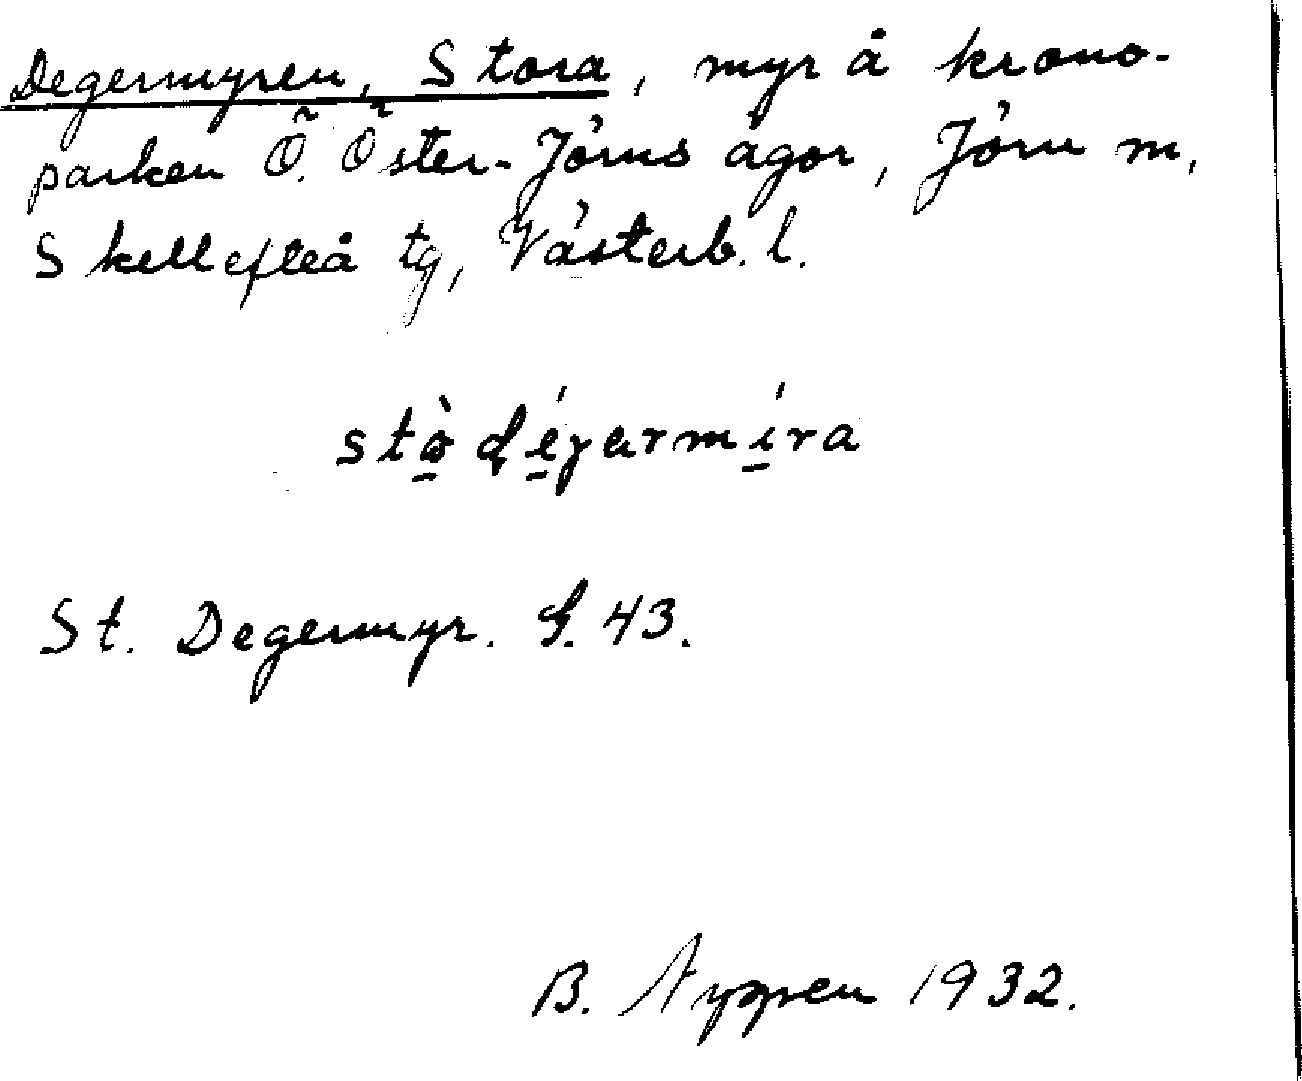 Degermyren, Stora, myr å krono-
parken Ö. Öster-Jörns ägor, Jörn m,
Skellefteå tg, Västerb. l.
stò dégarmíra
St. Degermyr. G. 43.
B. 1932.